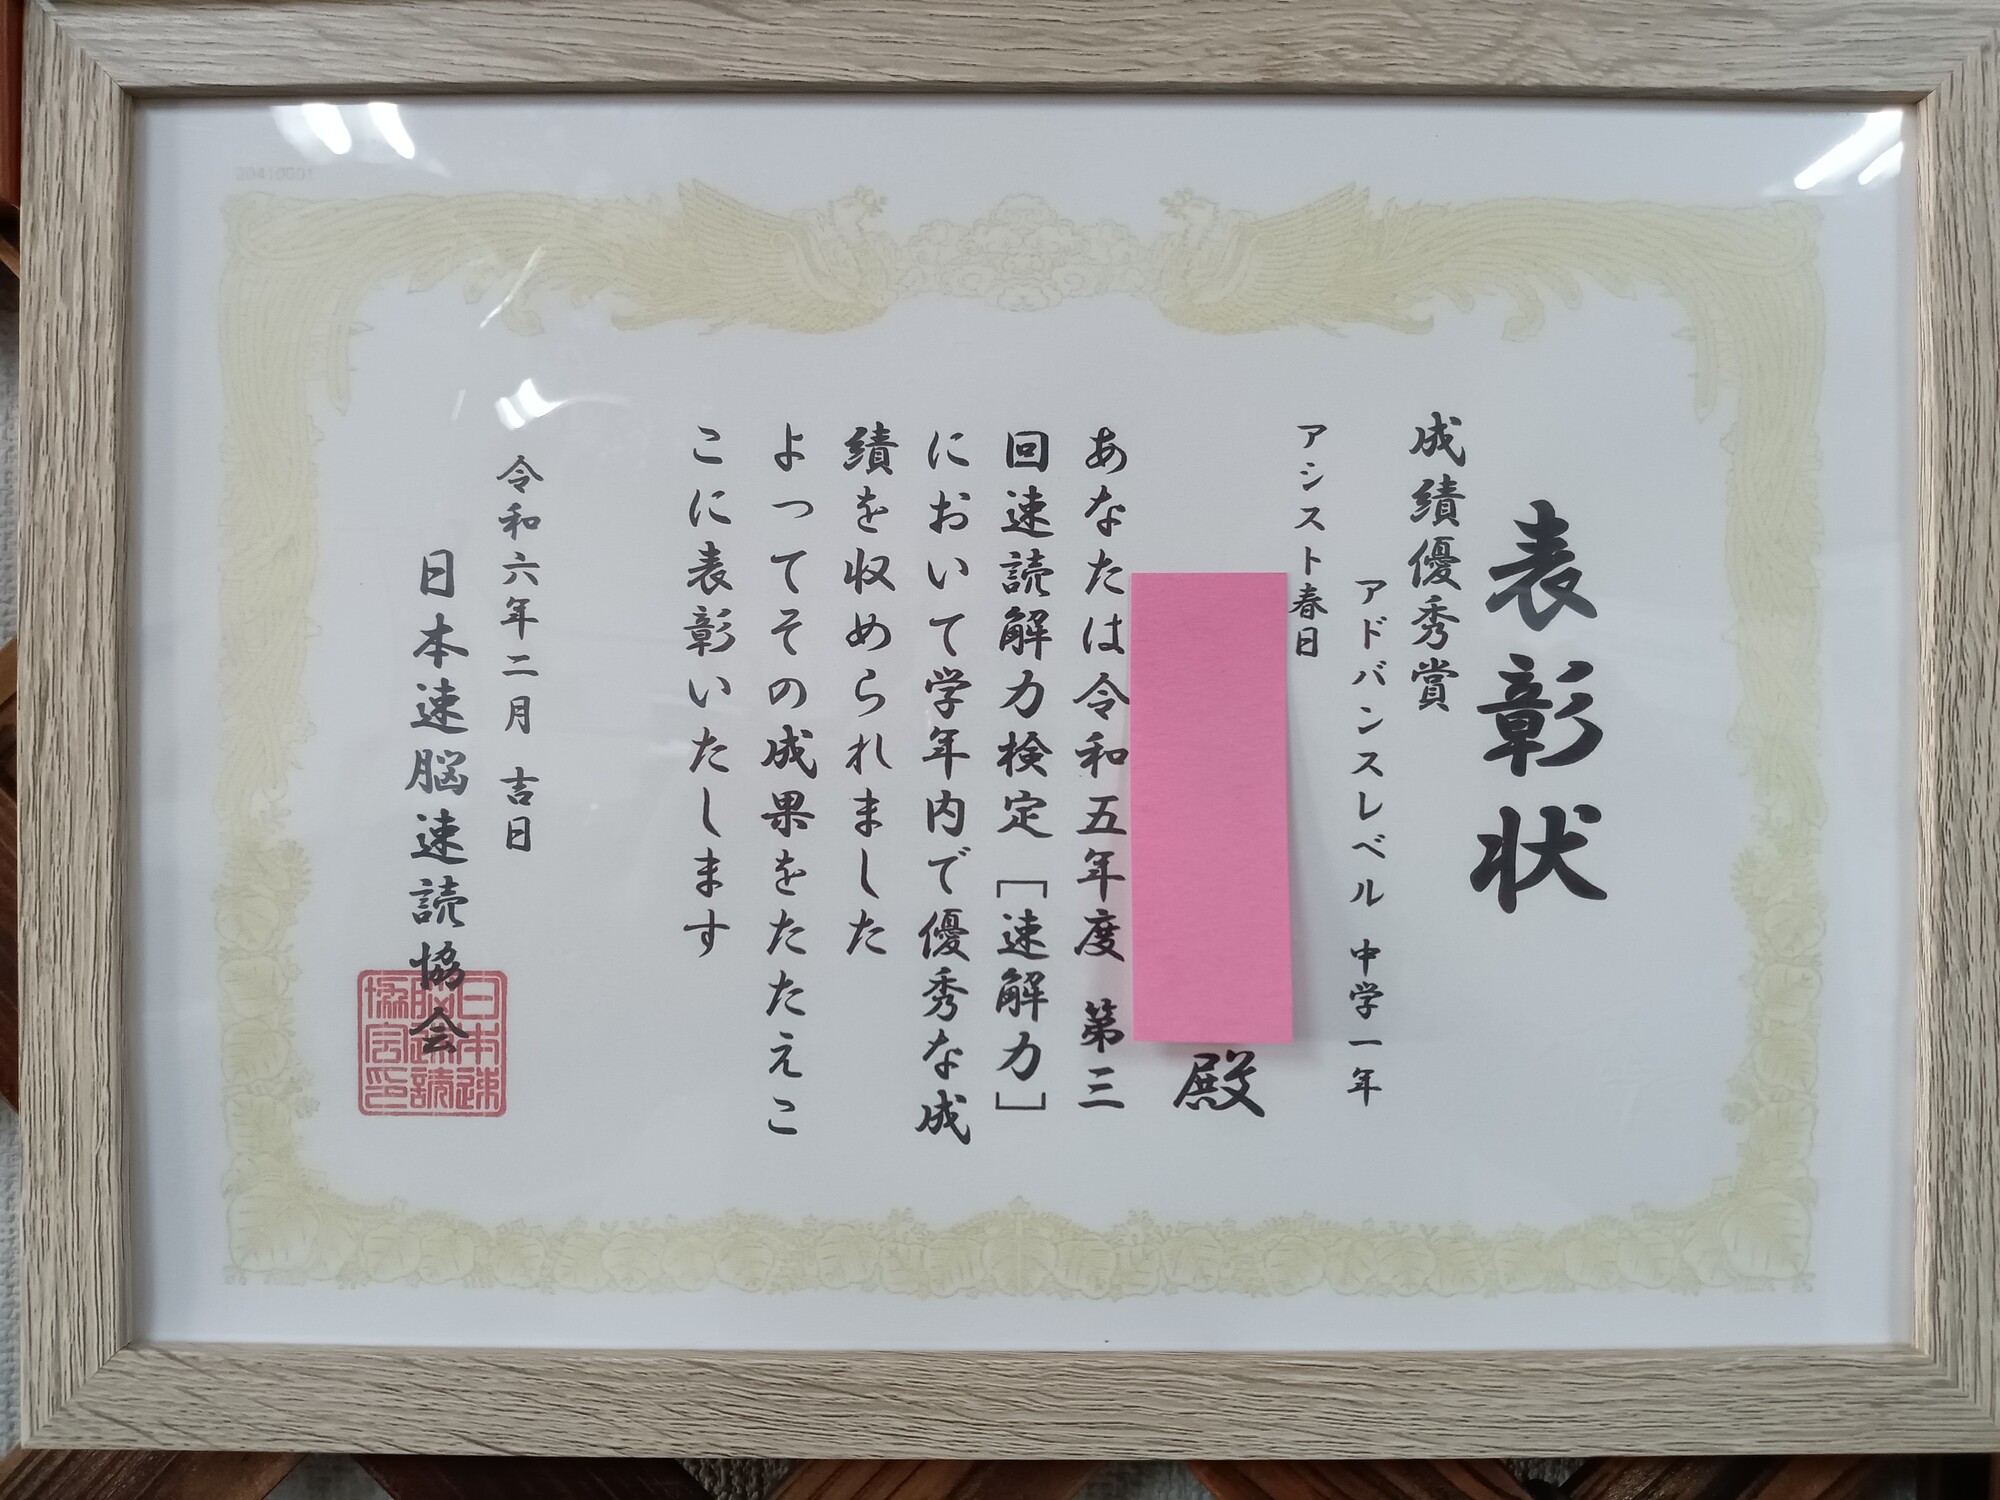 表彰状
成績優秀賞
アドバンスレベル 中学一年
アシスト春日
殿
あなたは令和五年度 第三
回速読解力検定［速解力］
において学年内で優秀な成
績を収められました
よってその成果をたたえこ
こに表彰いたします
令和六年二月 吉日
日本速脳速読協会
日本速
脳速読
協会印